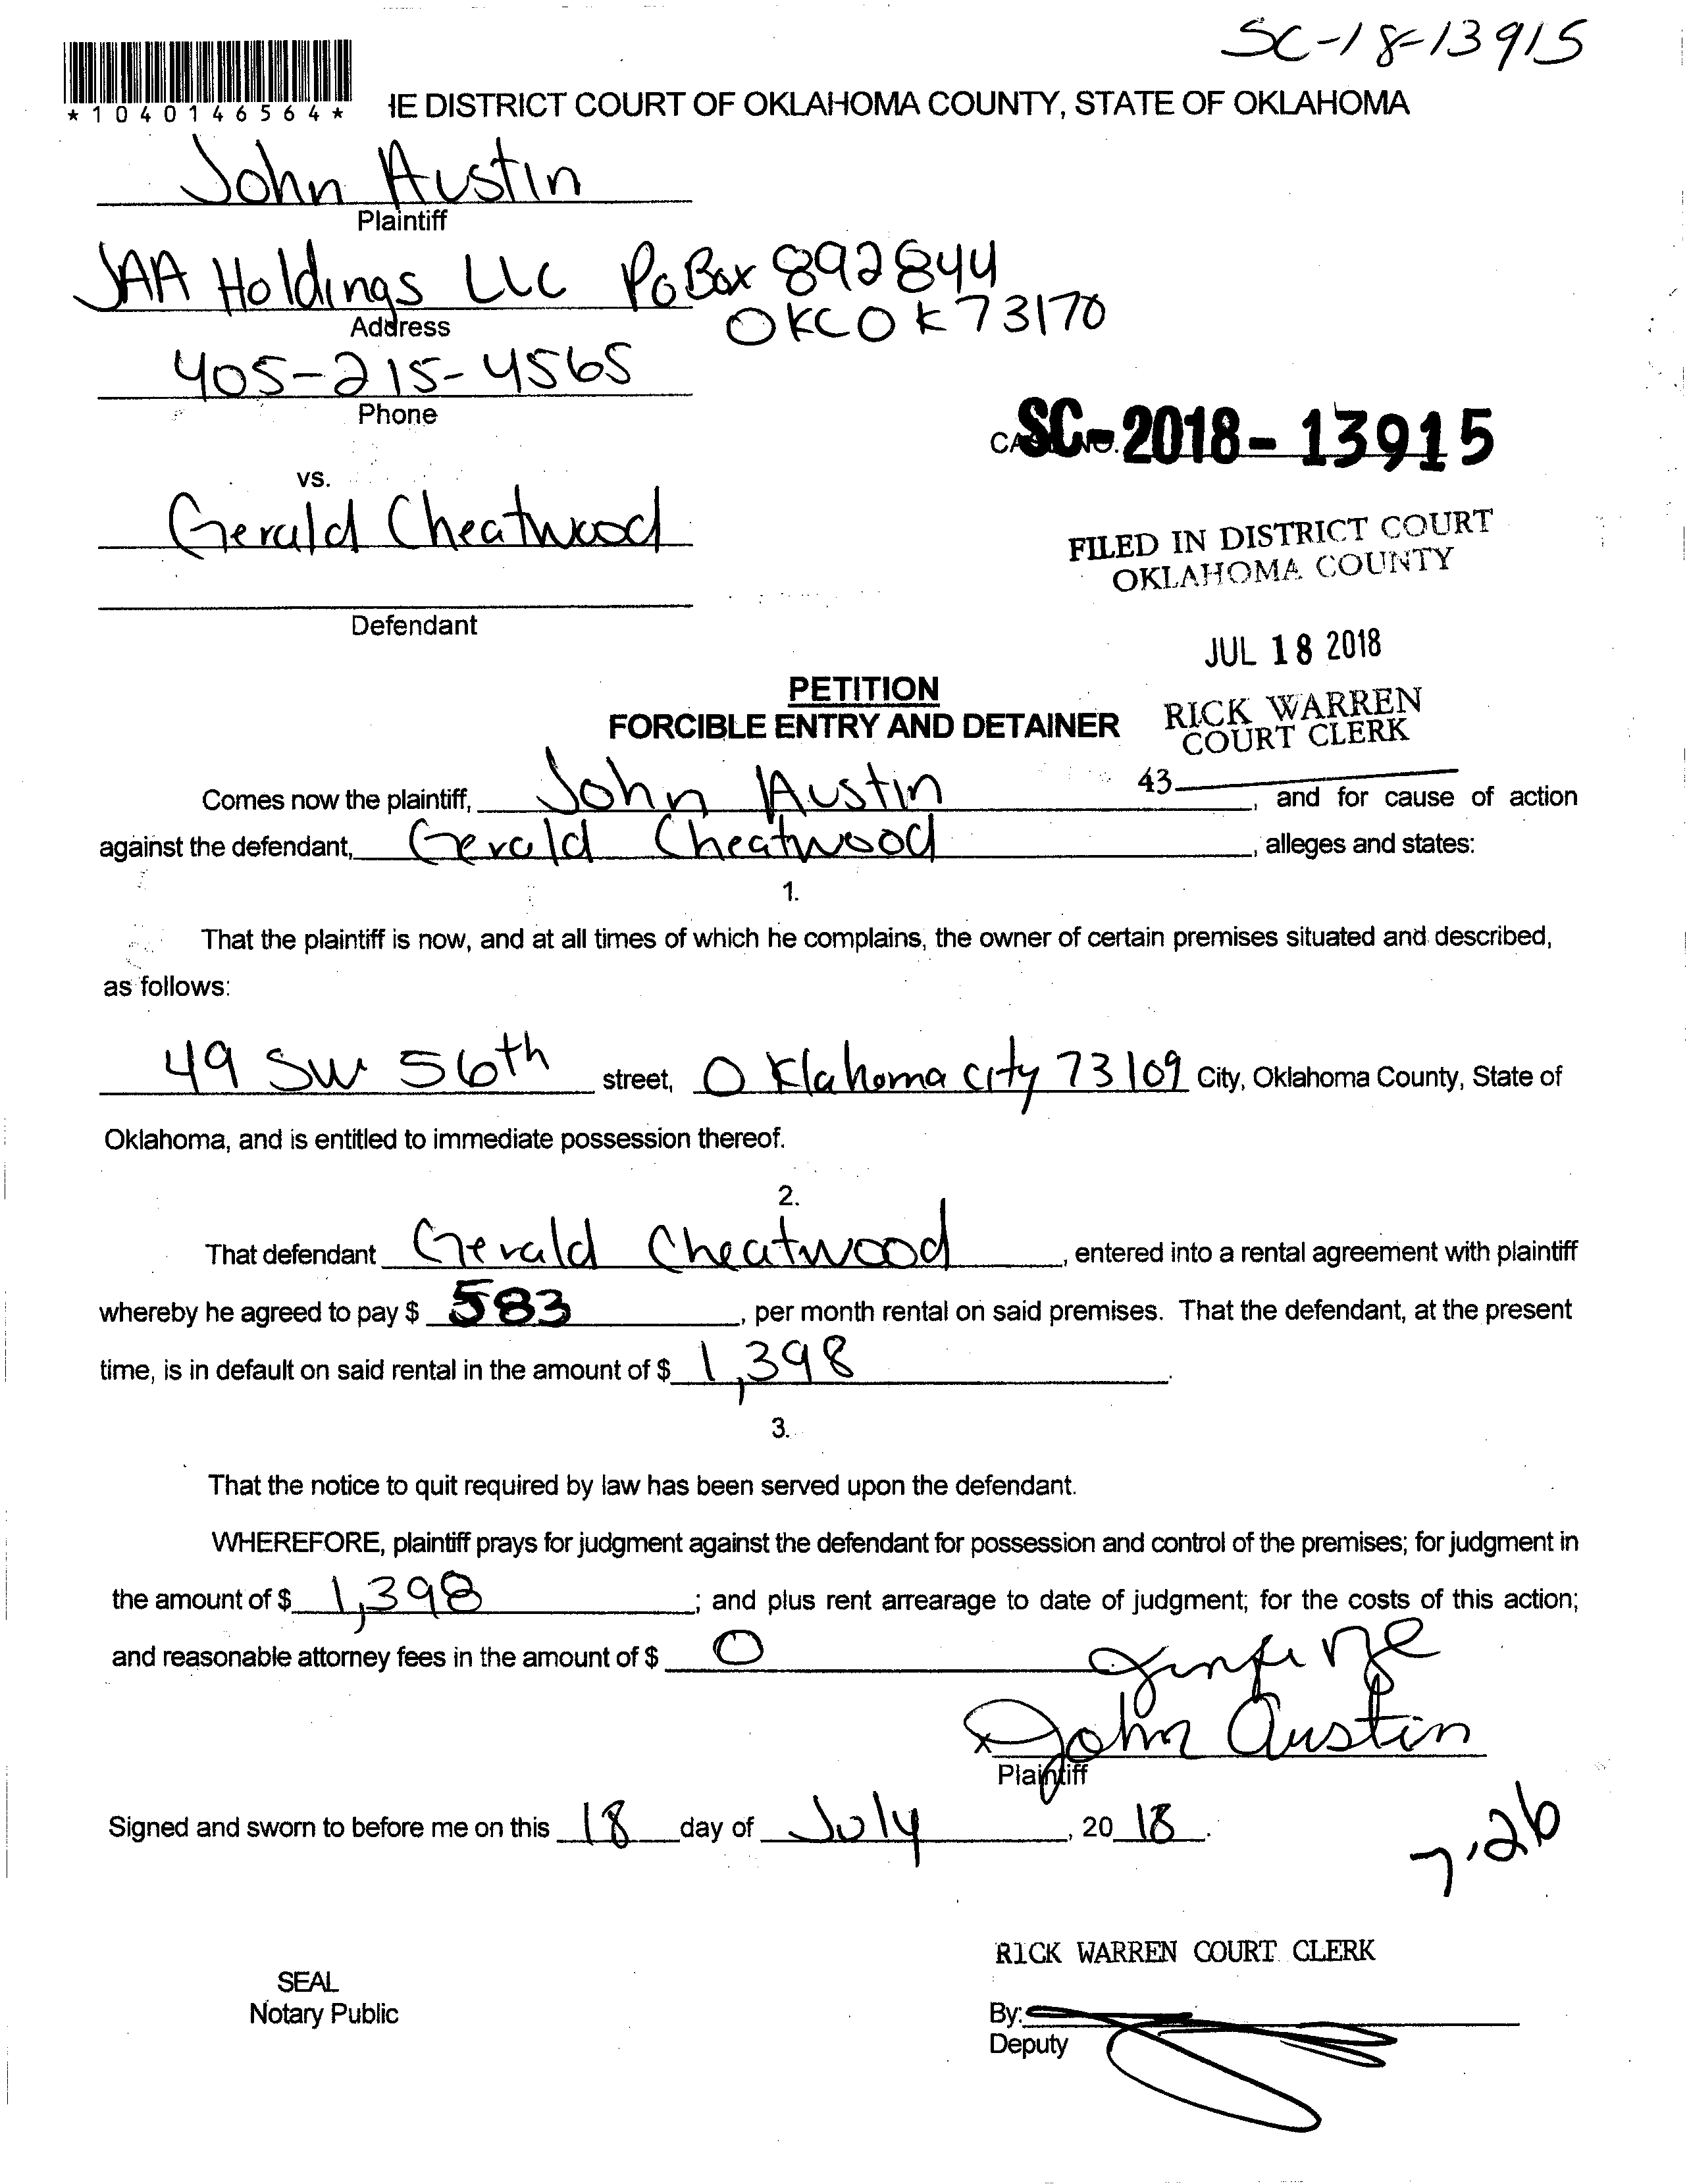 SC-18-13915
*1040146564*
HE DISTRICT COURT OF OKLAHOMA COUNTY, STATE OF OKLAHOMA
John Austin
Plaintiff
JAA Holdings LLC PoBox 892844
OKC OK 73170
Address
405-215-4565
Phone
SC-2018-13915
vs.
Gerald Cheatwood
FILED IN DISTRICT COURT
OKLAHOMA COUNTY
Defendant
JUL 18 2018
PETITION
FORCIBLE ENTRY AND DETAINER
RICK WARREN
COURT CLERK
43
Comes now the plaintiff, John Austin, and for cause of action
against the defendant, Gerald Cheatwood, alleges and states:
1.
That the plaintiff is now, and at all times of which he complains, the owner of certain premises situated and described,
as follows:
49 SW 56th street, Oklahoma city 73109 City, Oklahoma County, State of
Oklahoma, and is entitled to immediate possession thereof.
2.
That defendant Gerald Cheatwood, entered into a rental agreement with plaintiff
whereby he agreed to pay $ 583, per month rental on said premises. That the defendant, at the present
time, is in default on said rental in the amount of $ 1,398.
3.
That the notice to quit required by law has been served upon the defendant.
WHEREFORE, plaintiff prays for judgment against the defendant for possession and control of the premises; for judgment in
the amount of $ 1,398; and plus rent arrearage to date of judgment; for the costs of this action;
and reasonable attorney fees in the amount of $ 0
x John Austin
Plaintiff
Signed and sworn to before me on this 18 day of July, 20 18.
7.26
RICK WARREN COURT CLERK
SEAL
Notary Public
By:
Deputy